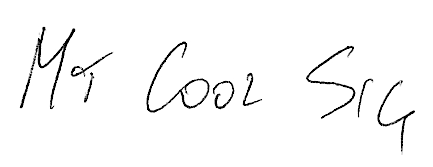 My Cool Sig